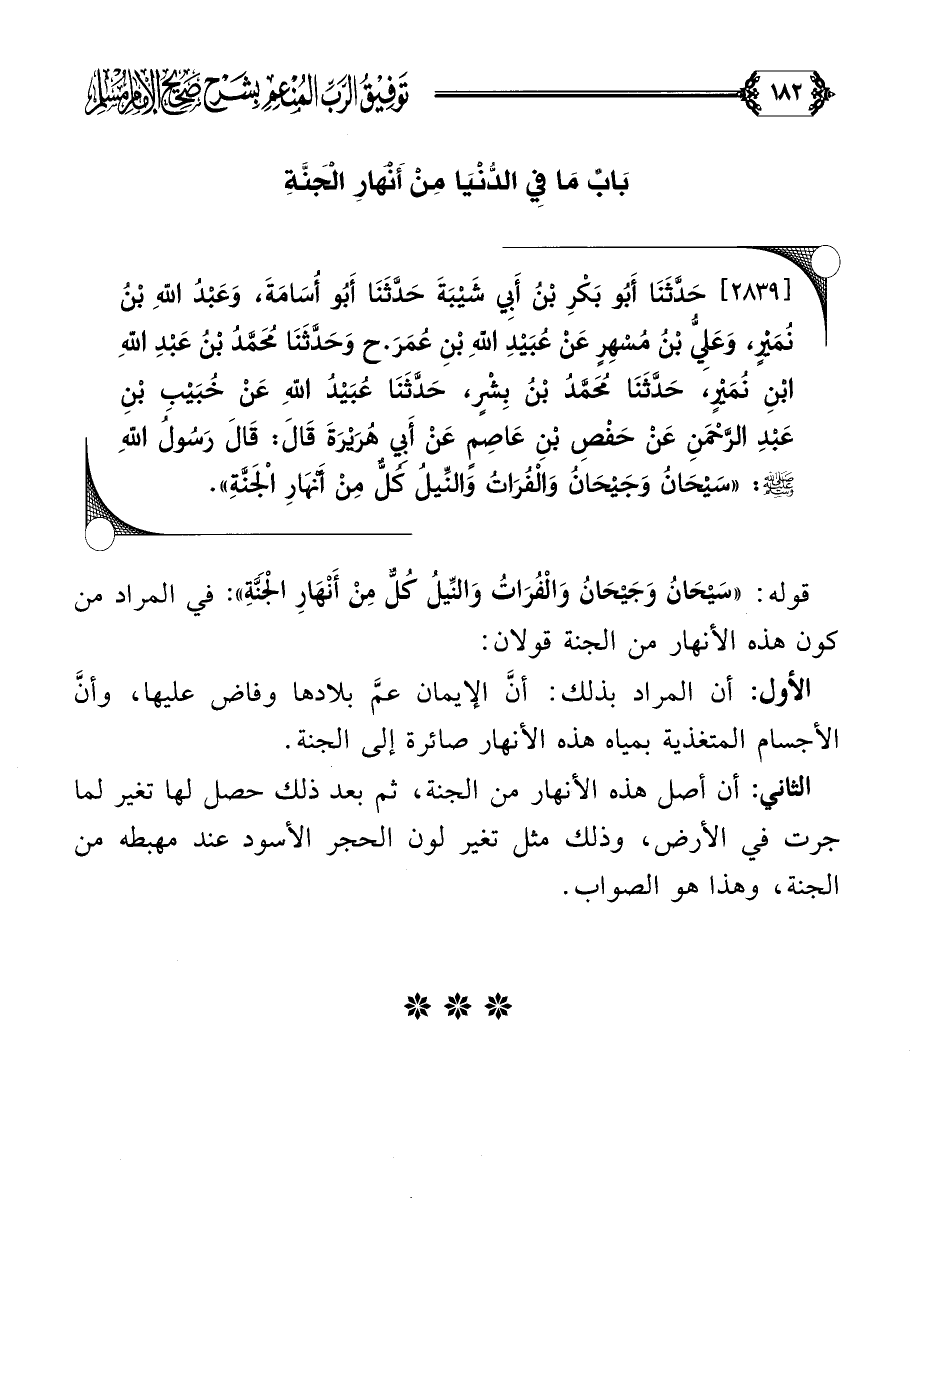 ١٨٢
توفيق الرب المنعم بشرح صحيح الإمام مسلم
بَابُ مَا فِي الدُّنْيَا مِنْ أَنْهَارِ الْجَنَّةِ
[٢٨٣٩] حَدَّثَنَا أَبُو بَكْرِ بْنُ أَبِي شَيْبَةَ حَدَّثَنَا أَبُو أُسَامَةَ، وَعَبْدُ اللهِ بْنُ
نُمَيْرٍ، وَعَلِيُّ بْنُ مُسْهِرٍ عَنْ عُبَيْدِ اللهِ بْنِ عُمَرَ.ح وَحَدَّثَنَا مُحَمَّدُ بْنُ عَبْدِ اللهِ
ابْنِ نُمَيْرٍ، حَدَّثَنَا مُحَمَّدُ بْنُ بِشْرٍ، حَدَّثَنَا عُبَيْدُ اللهِ عَنْ خُبَيْبِ بْنِ
عَبْدِ الرَّحْمَنِ عَنْ حَفْصِ بْنِ عَاصِمٍ عَنْ أَبِي هُرَيْرَةَ قَالَ: قَالَ رَسُولُ اللهِ
ﷺ: «سَيْحَانُ وَجَيْحَانُ وَالْفُرَاتُ وَالنِّيلُ كُلٌّ مِنْ أَنْهَارِ الْجَنَّةِ».
قوله: «سَيْحَانُ وَجَيْحَانُ وَالْفُرَاتُ وَالنِّيلُ كُلٌّ مِنْ أَنْهَارِ الْجَنَّةِ»: في المراد من
كون هذه الأنهار من الجنة قولان:
الأول: أن المراد بذلك: أنَّ الإيمان عمَّ بلادها وفاض عليها، وأنَّ
الأجسام المتغذية بمياه هذه الأنهار صائرة إلى الجنة.
الثاني: أن أصل هذه الأنهار من الجنة، ثم بعد ذلك حصل لها تغير لما
جرت في الأرض، وذلك مثل تغير لون الحجر الأسود عند مهبطه من
الجنة، وهذا هو الصواب.